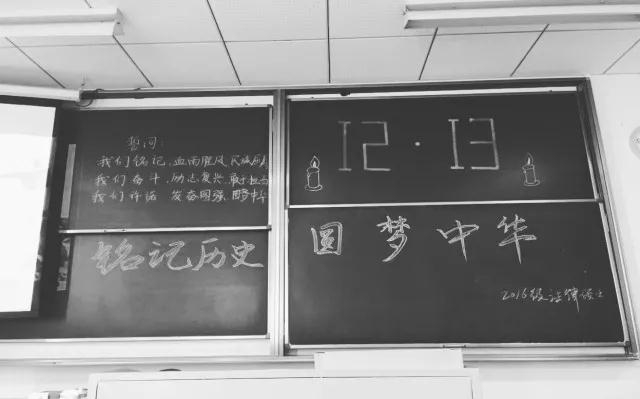 誓词:
我们铭记,血雨腥风 民族
我们奋斗,励志复兴,敢于担当
我们许诺 发奋图强 圆梦中华
铭记历史
12·13
圆梦中华
2016级法律硕士